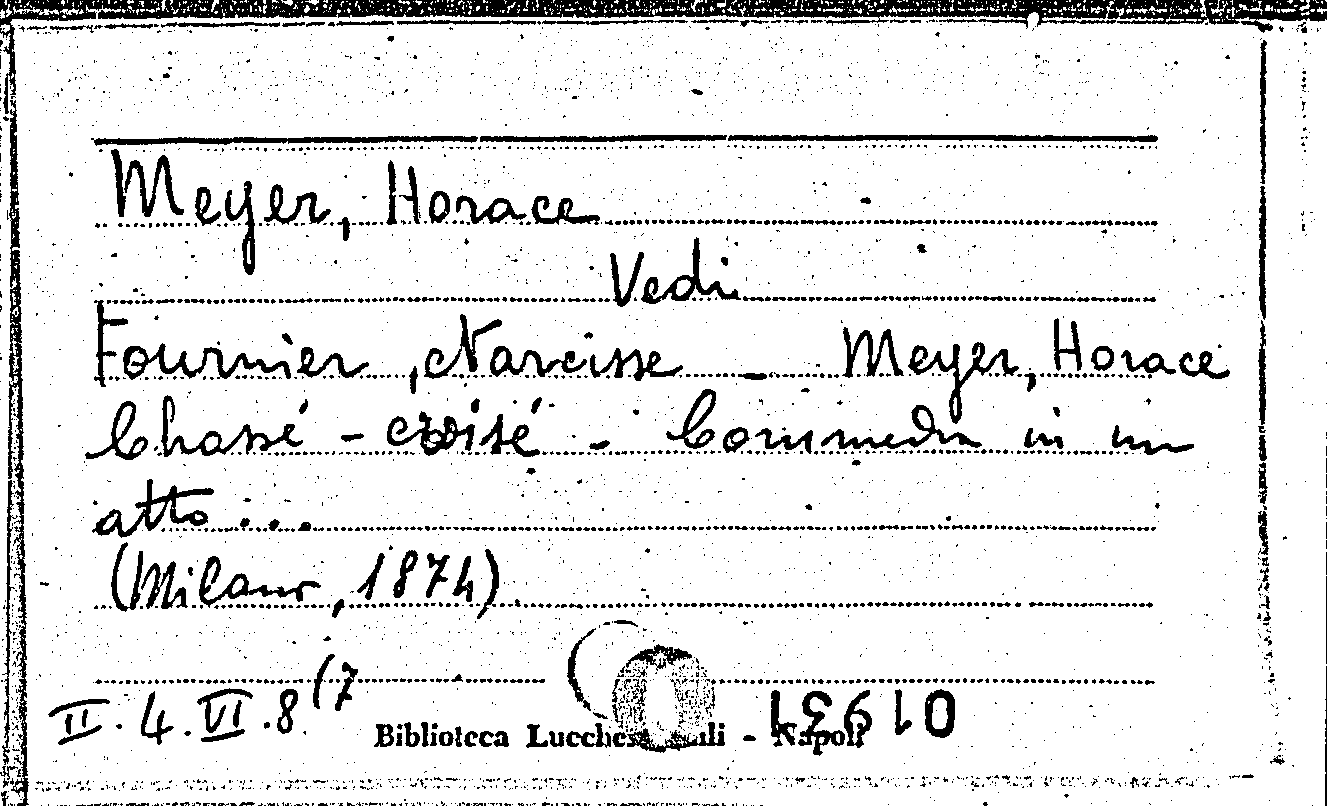 Meyer, Horace
Vedi
Fournier, Narcisse - Meyer, Horace
Chassé - croisé - Commedia in un
atto...
(Milano, 1874)
II. 4. VI. 8 (7
Biblioteca Lucchesi Palli - Napoli
01931